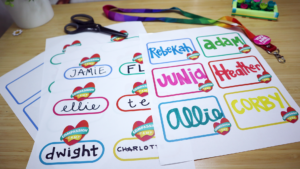 JAMIE
ellie
dwight
CHARLOTTE
Rebekah
adam
JUNIA
Heather
allie
CORBY